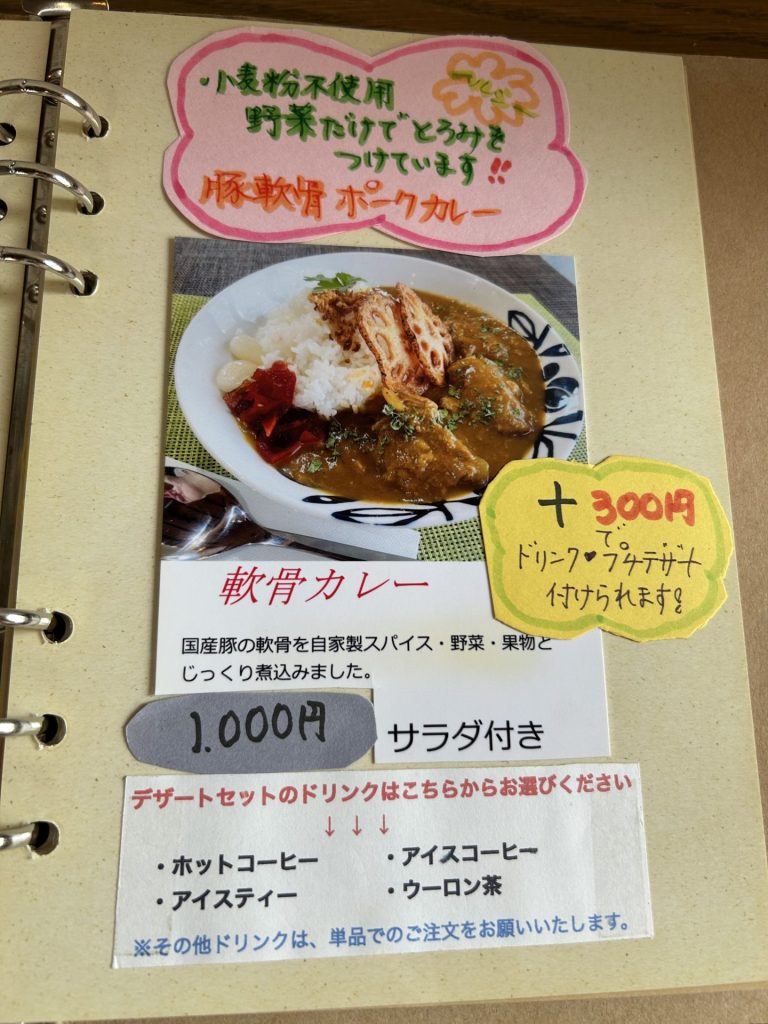 ・小麦粉不使用
ヘルシー
野菜だけでとろみを
つけています!!
豚軟骨 ポークカレー
+300円
で
ドリンク♥プチデザート
付けられます!
軟骨カレー
国産豚の軟骨を自家製スパイス・野菜・果物と
じっくり煮込みました。
1.000円
サラダ付き
デザートセットのドリンクはこちらからお選びください
↓↓↓
・ホットコーヒー ・アイスコーヒー
・アイスティー ・ウーロン茶
※その他ドリンクは、単品でのご注文をお願いいたします。